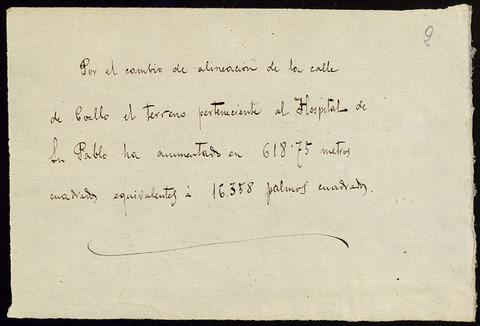 2
Por el cambio de alineación de la calle
de Coello el terreno perteneciente al Hospital de
Sn Pablo ha aumentado en 618'75 metros
cuadrados equivalentes á 16.358 palmos cuadrados.